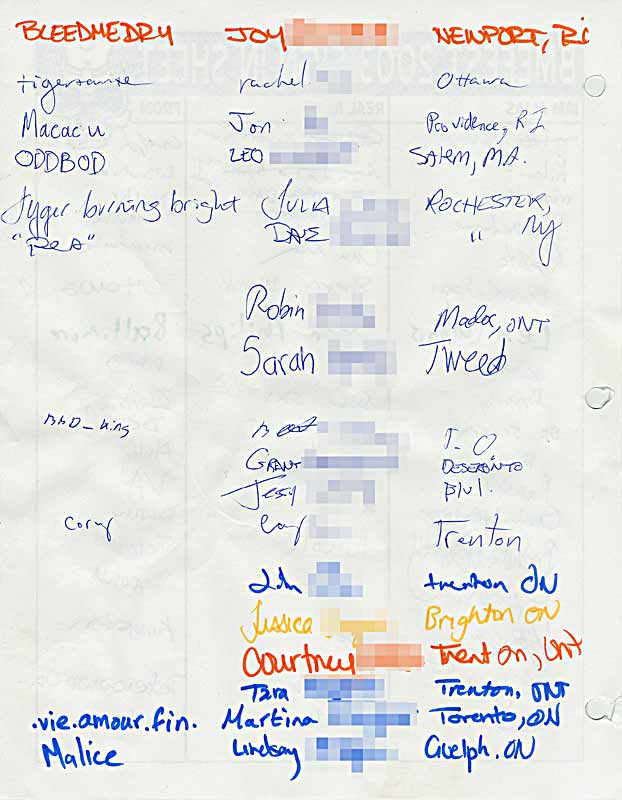 BLEEDMEDRY JOY NEWPORT, RI
rachel Ottawa
Macacu Jon Providence, RI
ODDBOD LEO SALEM, MA.
Tyger burning bright JULIA ROCHESTER,
DAVE " NY
Robin Madoc, ONT
Sarah Tweed
BBD_King T-O
GRANT DESERONTO
Jessy Blvl.
Cory Cory Trenton
trenton ON
Jessica Brighton ON
Courtney Trenton, Ont
Tara Trenton, ONT
.vie.amour.fin. Martina Toronto, ON
Malice Lindsay Guelph. ON